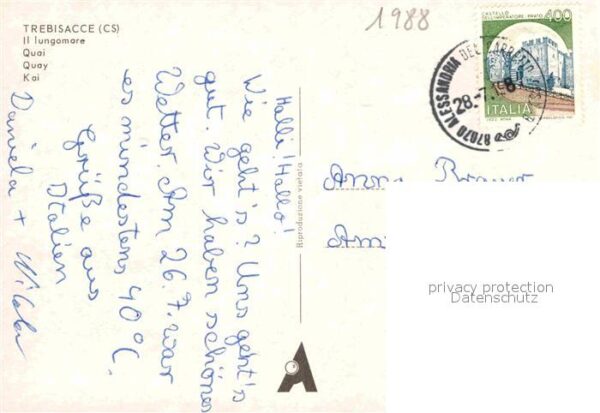 TREBISACCE (CS)
Il lungomare
Quai
Quay
Kai
1988
CASTELLO
DELL'IMPERATORE PRATO
400
ITALIA
87070 ALESSANDRIA DEL CARRETTO
28.-7.
Halli! Hallo!
Wie geht's? Uns geht's
gut. Wir haben schönes
Wetter. Am 26.7. war
es mindestens 40°C.
Grüße aus
Italien
Daniela +
Riproduzione vietata
privacy protection
Datenschutz